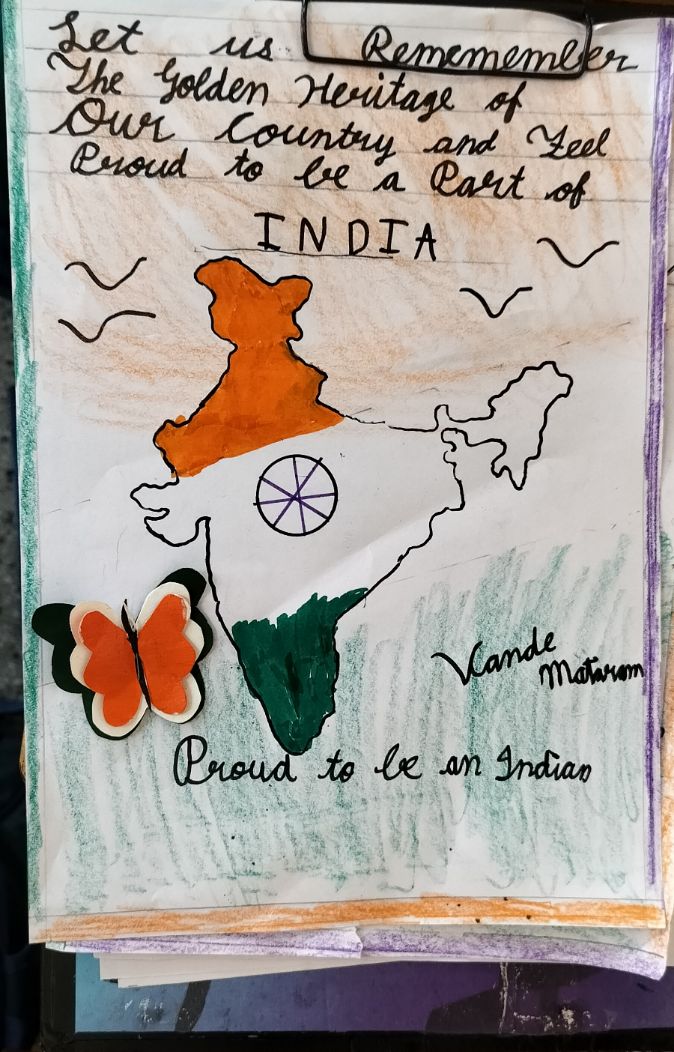 Let us Rememember
The Golden Heritage of
Our Country and Feel
Proud to be a Part of
INDIA
Vande
Mataram
Proud to be an Indian